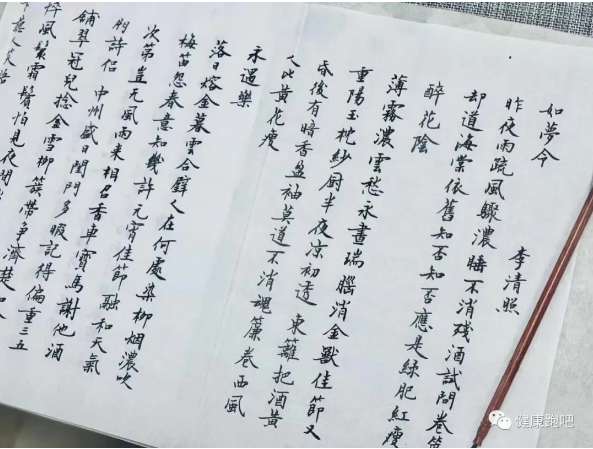 如夢令
李清照
昨夜雨疏風驟濃睡不消殘酒試問卷
却道海棠依舊知否知否應是綠肥紅瘦
醉花陰
薄霧濃雲愁永晝瑞腦消金獸佳節又
重陽玉枕紗厨半夜凉初透東籬把酒黃
昏後有暗香盈袖莫道不消魂簾卷西風
人比黃花瘦
永遇樂
落日熔金暮雲合璧人在何處染柳烟濃吹
梅笛怨春意知幾許元宵佳節融和天氣
次第豈无風雨來相召香車寶馬謝他酒
朋詩侶中州盛日閨門多暇記得偏重三五
鋪翠冠兒捻金雪柳簇帶爭濟楚如
悴風鬟霜鬢怕見夜間
人笑語
健康跑吧